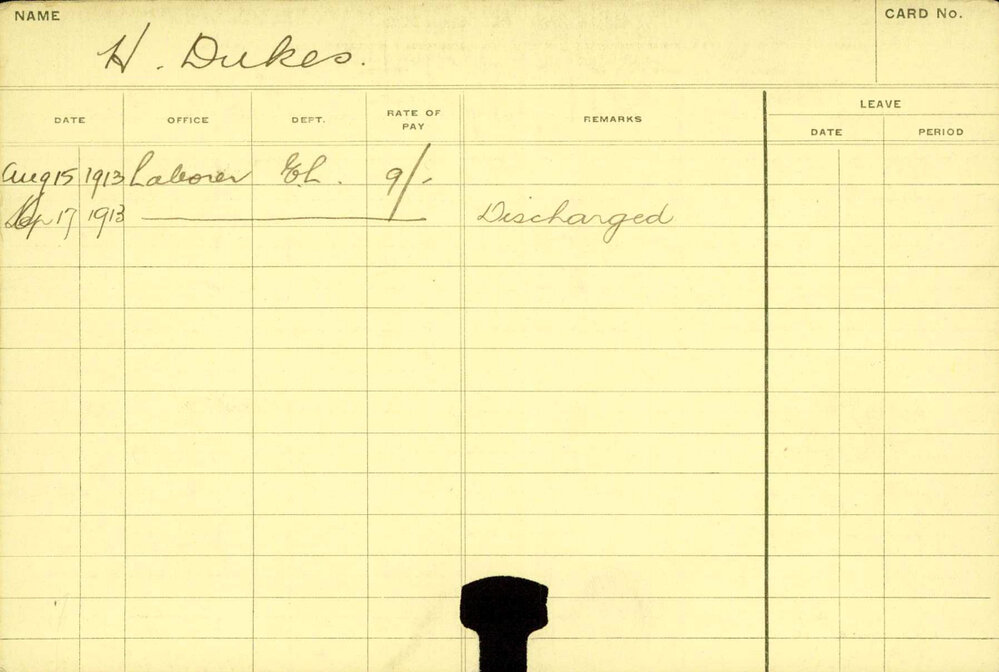 NAME CARD No.
H. Dukes.
LEAVE
DATE OFFICE DEPT. RATE OF PAY REMARKS DATE PERIOD
Aug 15 1913 Laborer E.L. 9/-
Sep 17 1913 Discharged